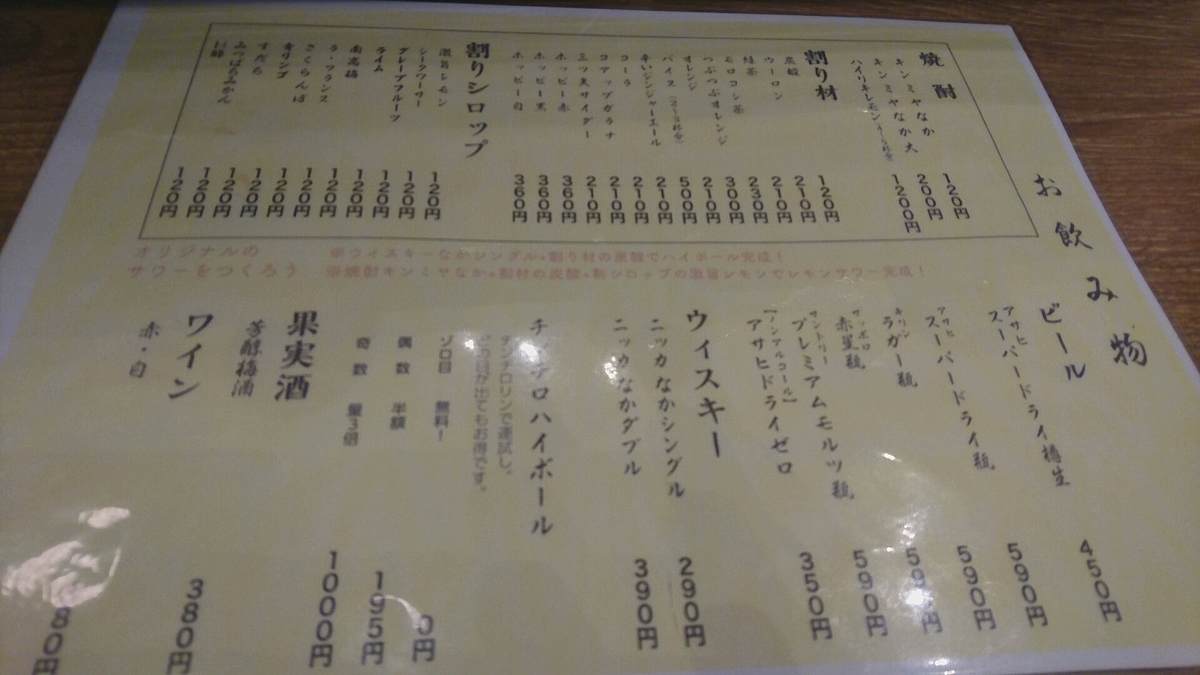 お飲み物
焼酎
キンミヤなか 120円
キンミヤなか大 200円
ハイリキレモン(2〜3杯分) 1200円
割り材
炭酸 120円
ウーロン 210円
緑茶 230円
モロコシ茶 300円
つぶつぶオレンジ 210円
オレンジ 500円
バイス(2〜3杯分) 210円
辛いジンジャーエール 210円
コーラ 210円
コアップガラナ 210円
三ツ矢サイダー 360円
ホッピー赤 360円
ホッピー黒 360円
ホッピー白
割りシロップ
激旨レモン 120円
シークワーサー 120円
グレープフルーツ 120円
ライム 120円
南高梅 120円
ラ・フランス 120円
さくらんぼ 120円
青リンゴ 120円
すだち 120円
みつばちみかん 120円
巨峰 120円
オリジナルの
サワーをつくろう
※ウイスキーなかシングル+割り材の炭酸でハイボール完成!
※焼酎キンミヤなか+割材の炭酸+割シロップの激旨レモンでレモンサワー完成!
ビール
アサヒ
スーパードライ樽生 450円
アサヒ
スーパードライ瓶 590円
キリン
ラガー瓶 590円
サッポロ
赤星瓶 590円
サントリー
プレミアムモルツ瓶 590円
【ノンアルコール】
アサヒドライゼロ 350円
ウイスキー
ニッカなかシングル 290円
ニッカなかダブル 390円
チンチロハイボール
チンチロリンで運試し、
どの目が出てもお得です。
ゾロ目 無料! 0円
偶数 半額 195円
奇数 量3倍 1000円
果実酒
芳醇梅酒 380円
ワイン
赤・白 80円